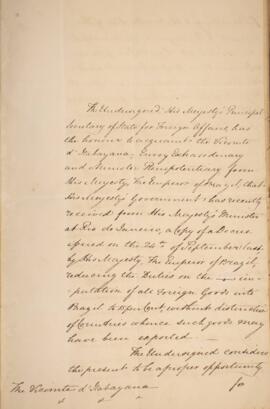 The Undersigned His Majesty's Principal
Secretary of State for Foreign Affairs, has
the honour to acquaint the Viconte
d'Itabayana, Envoy Extraordinary
and Minister Plenipotentiary from
His Majesty The Emperor of Brazil, that
His Majesty's Government has recently
received from His Majesty's Minister
at Rio de Janeiro, a Copy of a Decree
issued on the 24th of September last
by His Majesty The Emperor of Brazil,
reducing the Duties on the im-
portation of all Foreign Goods into
Brazil to 15 per Cent, without distinction
of Countries whence such goods may
have been exported.
The Undersigned considers
the present to be a proper opportunity
for
The Viconte d'Itabayana